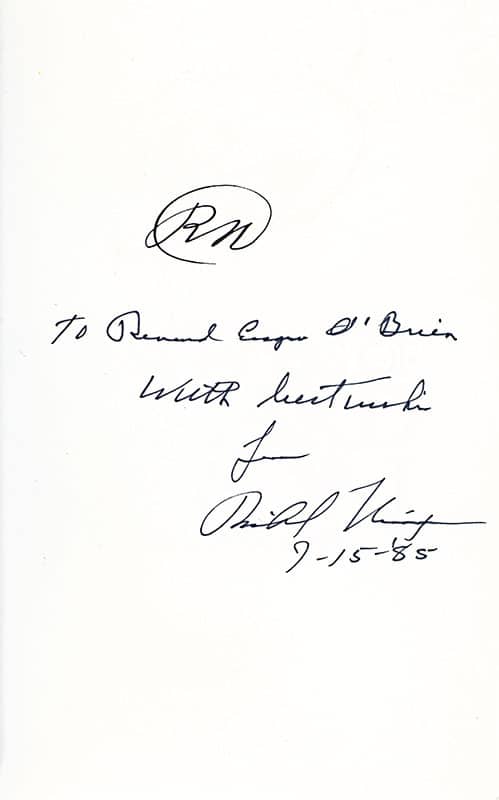 RN
To Reverend O'Brien
With best wishes
from
Richard Nixon
7-15-85